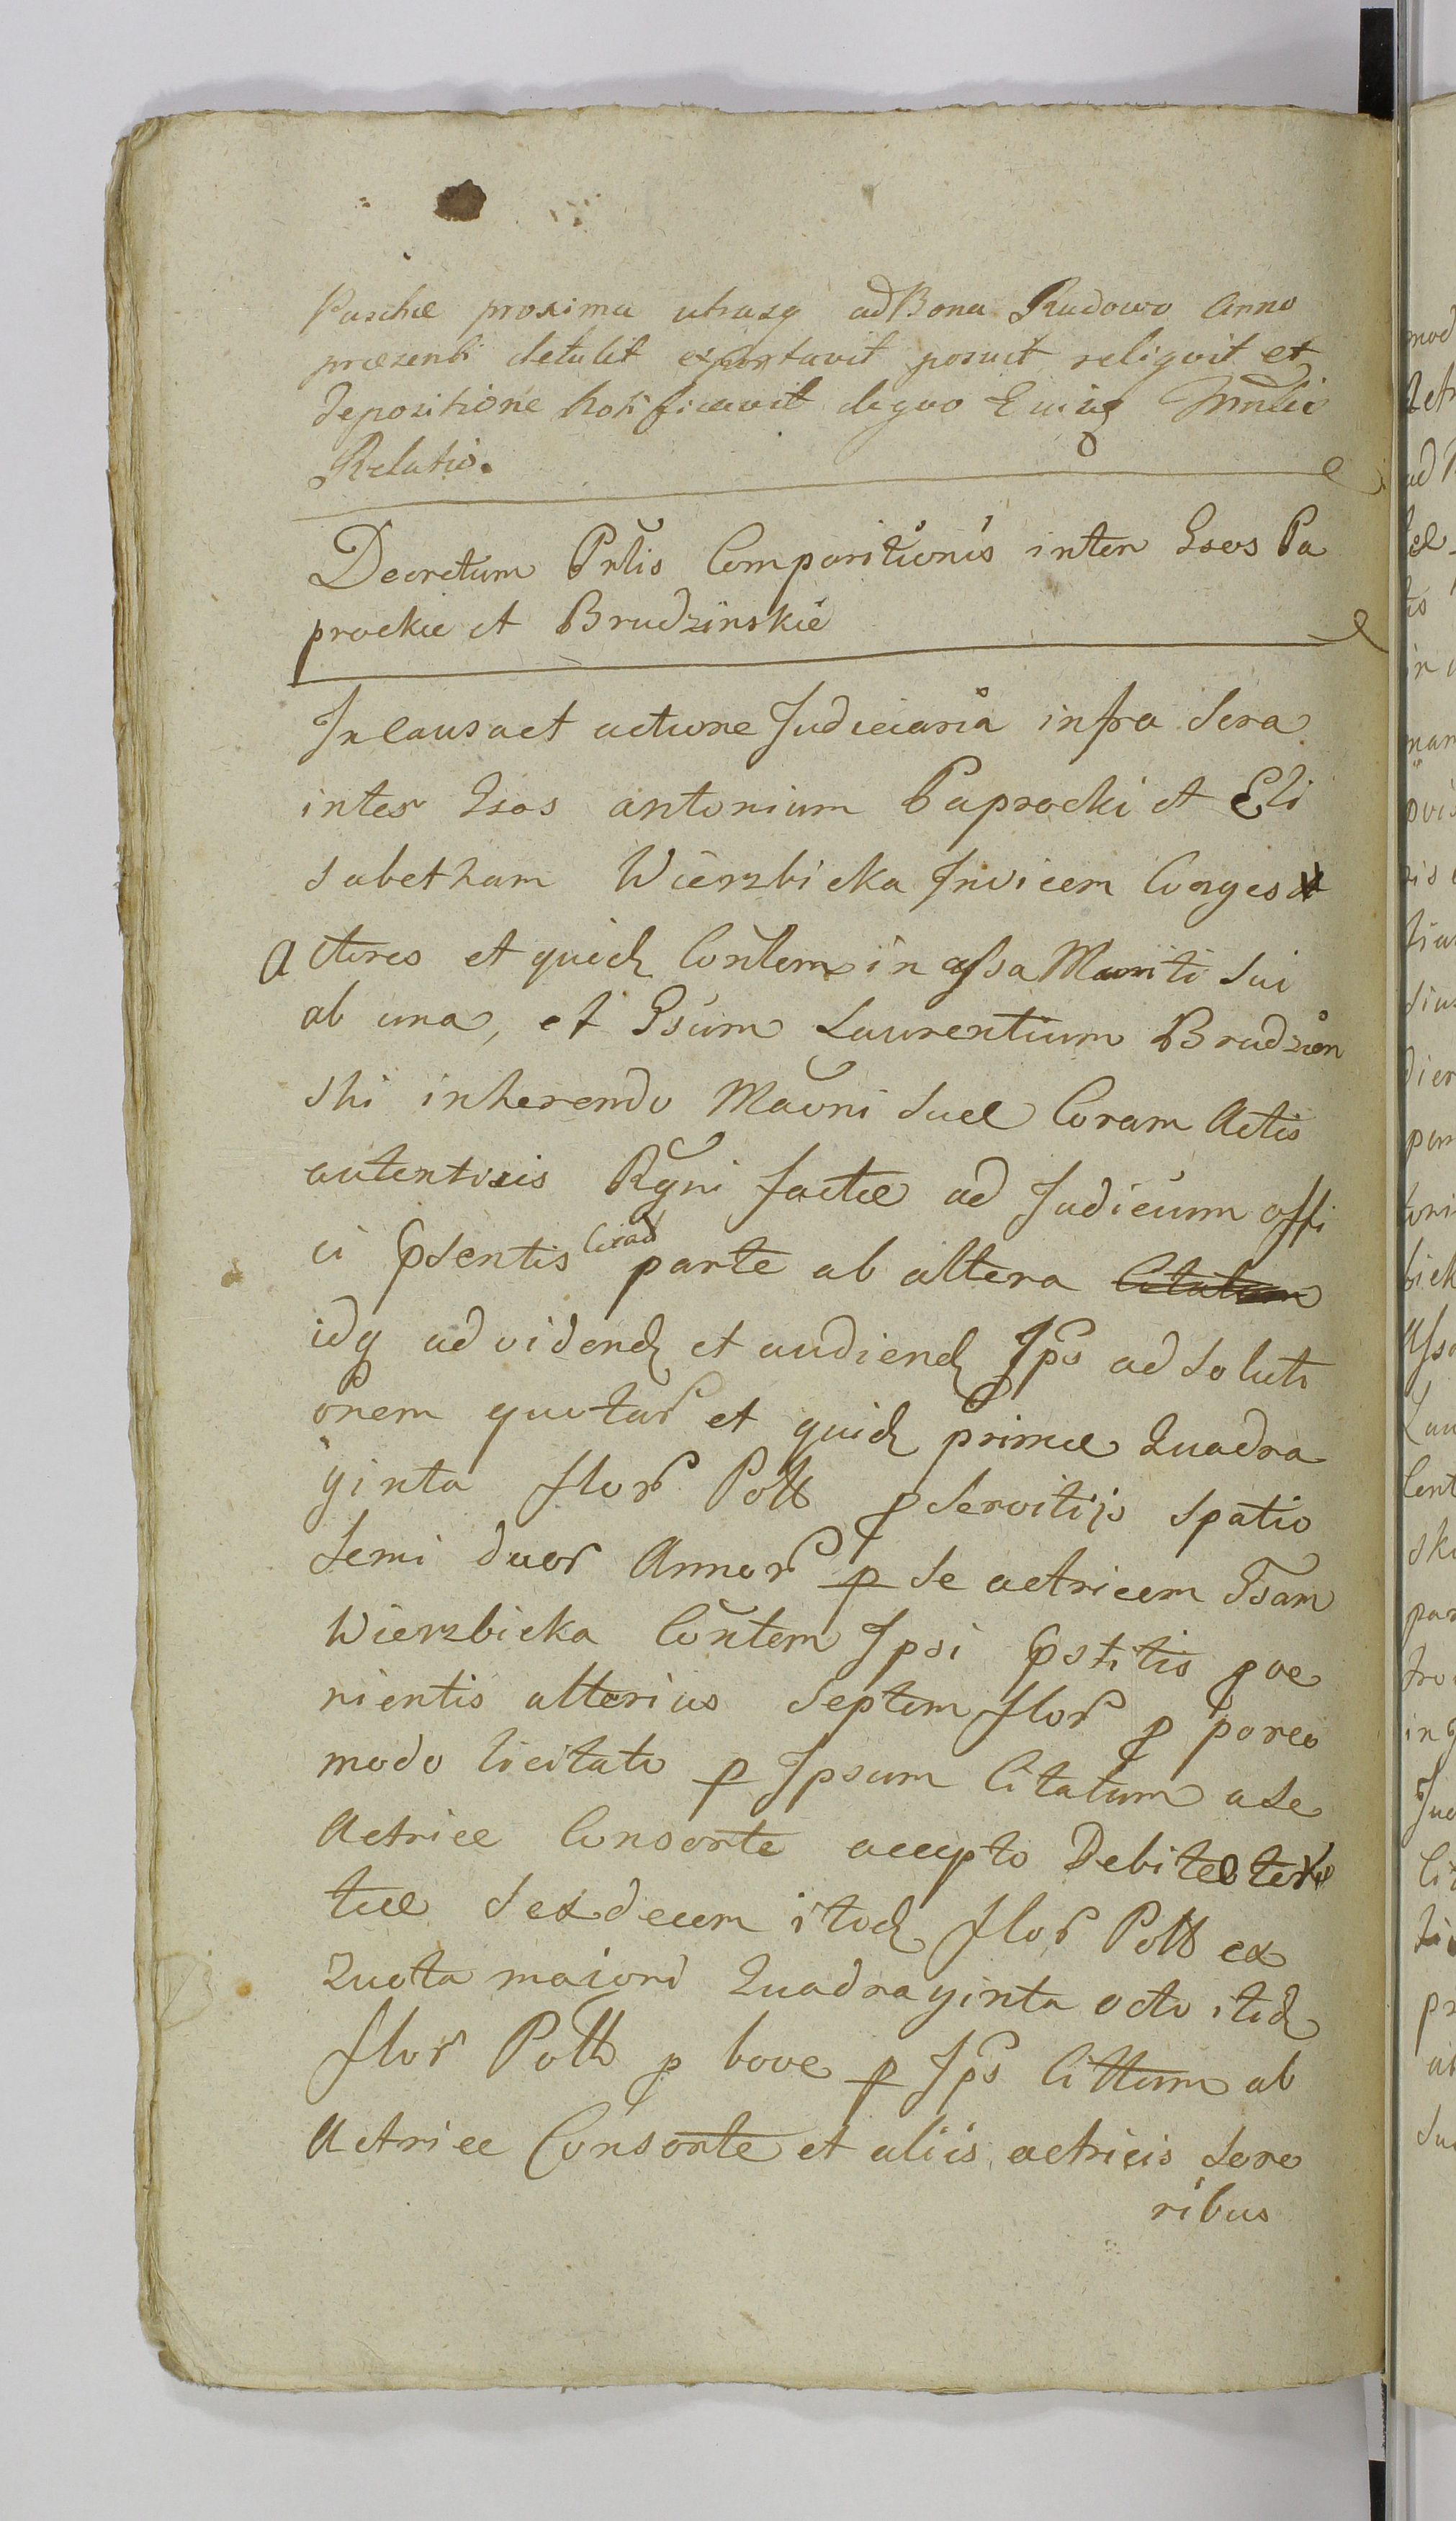 Paschæ proxima utrasq ad Bona Rudowo Anno
præsenti detulit exportavit posuit reliquit et
depositione notificavit de quo Eiusq
Relatio.
Decretum Prlis Comparitionis inter Gsos Pa
prockie et Brudzinskie
In causa et actione Judiciaria infra Scra
inter Gsos antonium Paprocki et Eli
sabetham Wierzbicka Invicem Conges
actores et quidq Consortem in assa Mariti Sui
ab una, et Gsum Laurentium Brudzin
ski inherendo Maoni Suæ Coram Actis
autenticis Rgni factæ ad Judicium offi
ci psentis Citat parte ab altera
idq ad vidend et audiend Ips ad Soluti
onem quotar et quid primæ Quadra
ginta flor Poll p Servitijs Spatio
Semi duor Annor p Se actricem Gsam
Wierzbicka Contem Ipsi pstitis pve
nientis alterius Septem flor p porco
modo licitato p Ipsum Citatum a Se
Actrice Consorte accepto Debitæ ter
tiæ Sexdecem itid flor Poll ex
Quota maiori Quadraginta octo itid
flor Poll p bove p Ips Cittum ab
Actrice Consorte et aliis actricis Soro
ribus